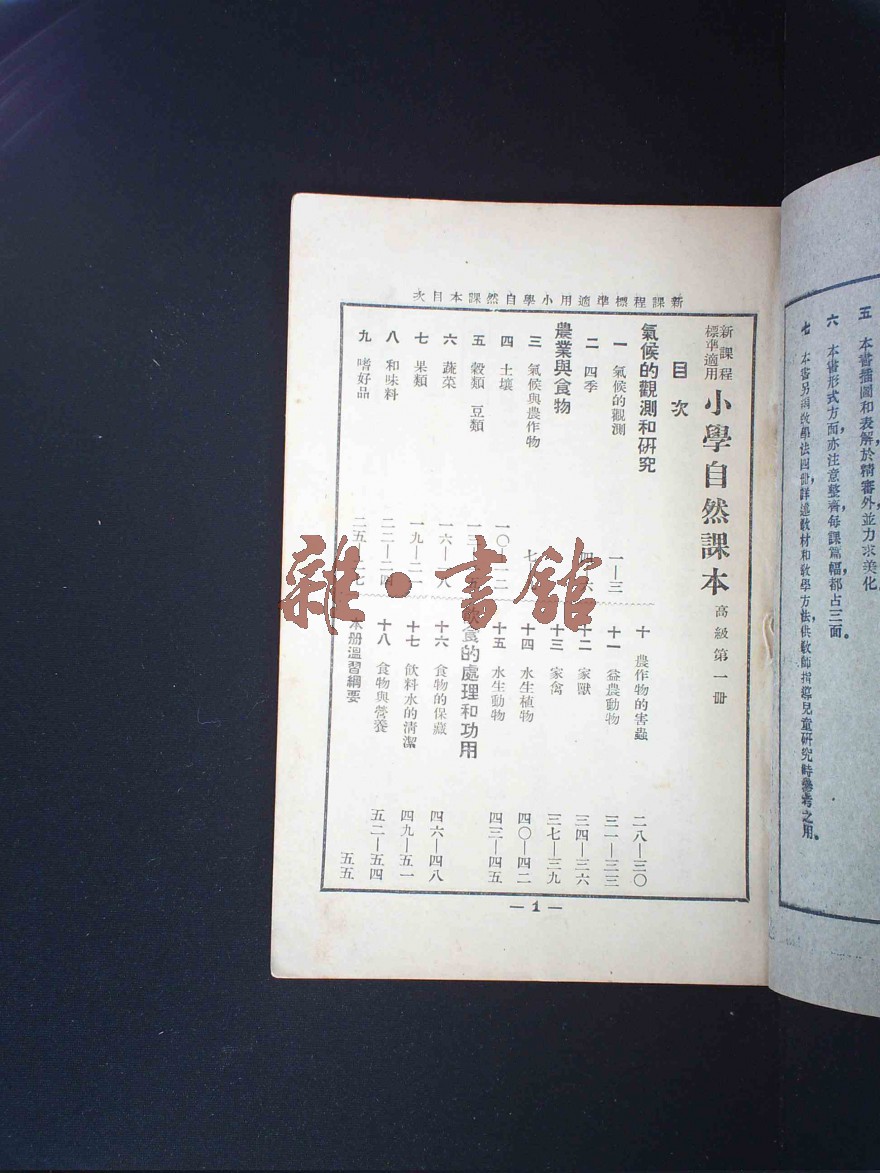 五　本書插圖和表解於精審外並力求美化。
六　本書形式方面，亦注意整齊，每課篇幅，都占三面。
七　本書另編教學法四冊，詳述教材和教學方法，供教師指導兒童研究時參考之用。
新課程標準適用小學自然課本目次
新課程標準適用 小學自然課本 高級第一冊
目次
氣候的觀測和研究
一　氣候的觀測　一—三
二　四季　四—六
農業與食物
三　氣候與農作物　七
四　土壤　一〇—一二
五　穀類　豆類　一三
六　蔬菜　一六—一八
七　果類　一九—二一
八　和味料　二二—二四
九　嗜好品　二五—二七
十　農作物的害蟲　二八—三〇
十一　益農動物　三一—三三
十二　家獸　三四—三六
十三　家禽　三七—三九
十四　水生植物　四〇—四二
十五　水生動物　四三—四五
飲食的處理和功用
十六　食物的保藏　四六—四八
十七　飲料水的清潔　四九—五一
十八　食物與營養　五二—五四
本册溫習綱要　五五
— 1 —
雜·書館